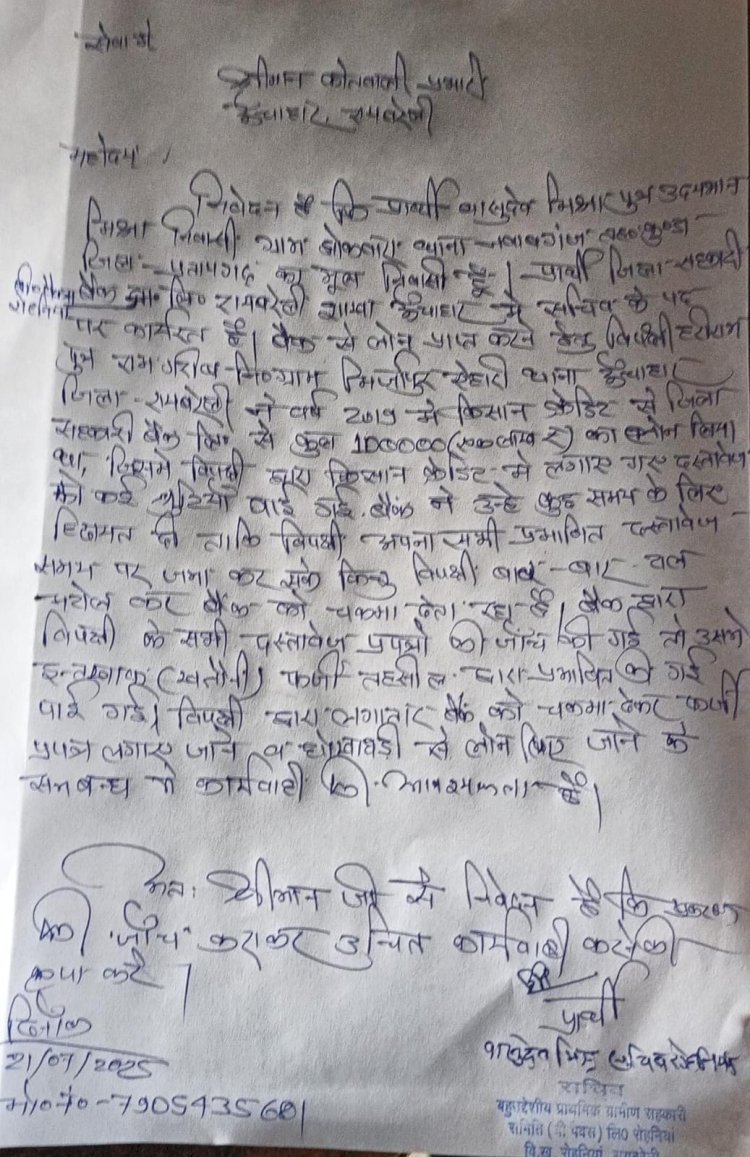 सेवा में
श्रीमान कोतवाली प्रभारी
ऊँचाहार, रायबरेली
महोदय,
निवेदन है कि प्रार्थी वासुदेव मिश्रा पुत्र उदयभान
मिश्रा निवासी ग्राम थाना नवाबगंज तह० कुण्डा
जिला - प्रतापगढ़ का मूल निवासी है। प्रार्थी जिला सहकारी
बैंक लि० रायबरेली शाखा ऊँचाहार में सचिव के पद
पर कार्यरत है। बैंक से लोन प्राप्त करने हेतु विपक्षी हरीराम
पुत्र राम नि० ग्राम मिर्जापुर ऐहारी थाना ऊँचाहार
जिला - रायबरेली ने वर्ष 2019 में किसान क्रेडिट से जिला
सहकारी बैंक लि० से कुल 100000 (एक लाख रु) का लोन लिया
था, जिसमे विपक्षी द्वारा किसान क्रेडिट में लगाए गए दस्तावेज
में कई त्रुटियां पाई गई. बैंक ने उन्हे कुछ समय के लिए
हिदायत दी ताकि विपक्षी अपना सभी प्रमाणित दस्तावेज
समय पर जमा कर सके किन्तु विपक्षी बार - बार टाल
मटोल कर बैंक को चकमा देता रहा है। बैंक द्वारा
विपक्षी के सभी दस्तावेज प्रपत्रो की जाँच की गई तो उसमे
(खतौनी) फर्जी तहसील द्वारा प्रमाणित की गई
पाई गई। विपक्षी द्वारा लगातार बैंक को चकमा देकर फर्जी
प्रपत्र लगाए जाने व धोखाधड़ी से लोन लिए जाने के
सम्बन्ध में कार्यवाही की आवश्यकता है।
अतः श्रीमान जी से निवेदन है कि प्रकरण
की जाँच कराकर उचित कार्यवाही करने की
कृपा करें।
प्रार्थी
दिनांक
21/07/2025
वासुदेव मिश्र सचिव रोहनियां
मो० नं० - 7905435681
सचिव
बहुउद्देशीय प्राथमिक ग्रामीण सहकारी
समिति (बी पैक्स) लि० रोहनियां
वि.ख. रोहनियां, रायबरेली